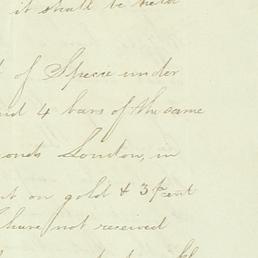 it shall be held
of Specie under
and 4 bars of the same
London, in
on gold & 3 p cent
I have not received